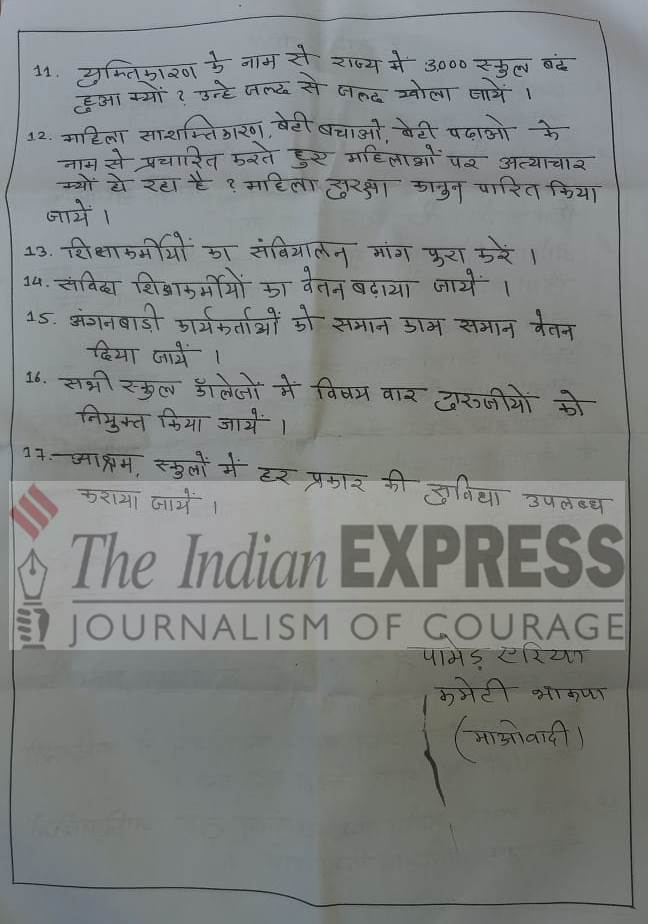 11. युक्तिकारण के नाम से राज्य में 3,000 स्कुल बंद
हुआ क्यों ? उन्हे जल्द से जल्द खोला जायें ।
12. महिला साशक्तिकारण, बेटी बचाओ, बेटी पढाओ के
नाम से प्रचारित करते हुए महिलाओं पर अत्याचार
क्यो हो रहा है ? महिला सुरक्षा कानुन पारित किया
जायें ।
13. शिक्षाकर्मीयों का संवियालेन मांग पुरा करें ।
14. संविदा शिक्षाकर्मीयों का वेतन बढ़ाया जायें ।
15. अंगनबाड़ी कार्यकर्ताओं को समान काम समान वेतन
दिया जायें ।
16. सभी स्कुल कॉलेजों में विषय वार गुरुजीयों को
नियुक्त किया जायें ।
17. आश्रम, स्कुलों में हर प्रकार की सुविधा उपलब्ध
कराया जायें ।
The Indian EXPRESS
JOURNALISM OF COURAGE
पामेड़ एरिया
कमेटी भाकपा
(माओवादी)